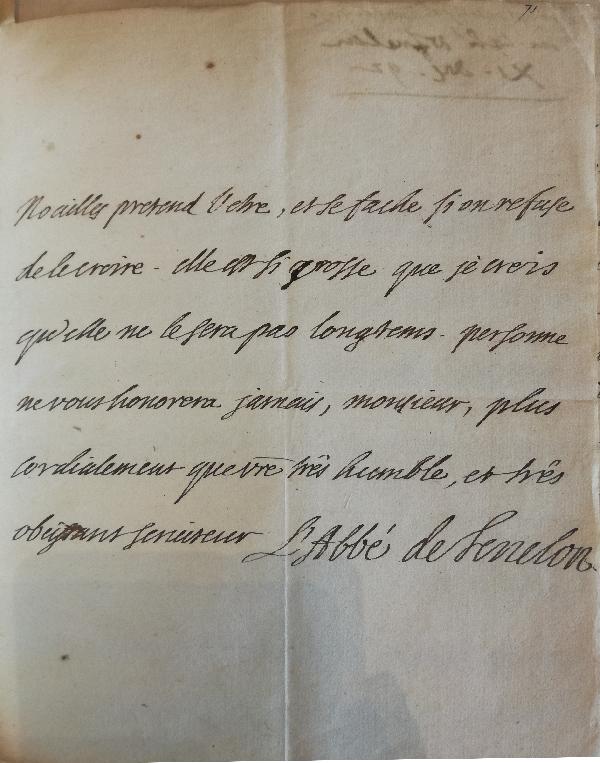 71
Noailles pretend l'etre, et se fache si on refuse
de le croire. elle est si grosse que je crois
qu'elle ne le sera pas longtems. personne
ne vous honorera jamais, monsieur, plus
cordialement que vre très humble, et très
obeissant serviteur L'Abbé de Fenelon.